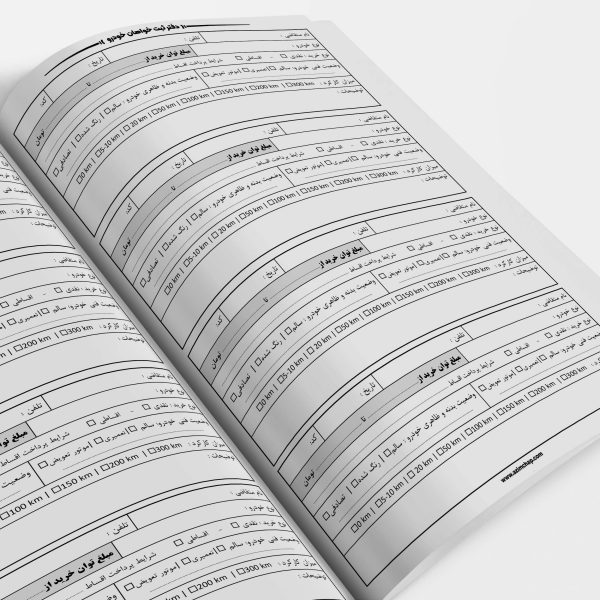 دفتر ثبت خواهان خودرو
نام متقاضی : تلفن : تاریخ : کد:
نوع خودرو : مبلغ توان خرید از تا تومان
نوع خرید : نقدی - اقساطی شرایط پرداخت اقساط
وضعیت فنی خودرو: سالم | تعمیری | موتور تعویض وضعیت بدنه و ظاهری خودرو : سالم | رنگ شده | تصادفی
میزان کارکرد : 300 km | 200 km | 150 km | 100 km | 50 km | 20 km | 5-10 km | 0 km
توضیحات :
نام متقاضی : تلفن : تاریخ : کد:
نوع خودرو : مبلغ توان خرید از تا تومان
نوع خرید : نقدی - اقساطی شرایط پرداخت اقساط
وضعیت فنی خودرو: سالم | تعمیری | موتور تعویض وضعیت بدنه و ظاهری خودرو : سالم | رنگ شده | تصادفی
میزان کارکرد : 300 km | 200 km | 150 km | 100 km | 50 km | 20 km | 5-10 km | 0 km
توضیحات :
نام متقاضی : تلفن : تاریخ : کد:
نوع خودرو : مبلغ توان خرید از تا تومان
نوع خرید : نقدی - اقساطی شرایط پرداخت اقساط
وضعیت فنی خودرو: سالم | تعمیری | موتور تعویض وضعیت بدنه و ظاهری خودرو : سالم | رنگ شده | تصادفی
میزان کارکرد : 300 km | 200 km | 150 km | 100 km | 50 km | 20 km | 5-10 km | 0 km
توضیحات :
نام متقاضی : تلفن : تاریخ : کد:
نوع خودرو : مبلغ توان خرید از تا تومان
نوع خرید : نقدی - اقساطی شرایط پرداخت اقساط
وضعیت فنی خودرو: سالم | تعمیری | موتور تعویض وضعیت بدنه و ظاهری خودرو : سالم | رنگ شده | تصادفی
میزان کارکرد : 300 km | 200 km | 150 km | 100 km | 50 km | 20 km | 5-10 km | 0 km
توضیحات :
www.azimchap.com
توضیحات :
نام متقاضی :
نوع خودرو :
نوع خرید : نقدی - اقساطی
وضعیت فنی خودرو: سالم | تعمیری
میزان کارکرد : 300 km | 200 km
توضیحات :
نام متقاضی : تلفن :
نوع خودرو : مبلغ توان
نوع خرید : نقدی - اقساطی شرایط پرداخت اقساط
وضعیت فنی خودرو: سالم | تعمیری | موتور تعویض وضعیت
میزان کارکرد : 300 km | 200 km | 150 km | 100 km
توضیحات :
نام متقاضی : تلفن :
نوع خودرو : مبلغ توان خرید از
نوع خرید : نقدی - اقساطی شرایط پرداخت اقساط
وضعیت فنی خودرو: سالم | تعمیری | موتور تعویض
میزان کارکرد : 300 km | 200 km
توضیحات :